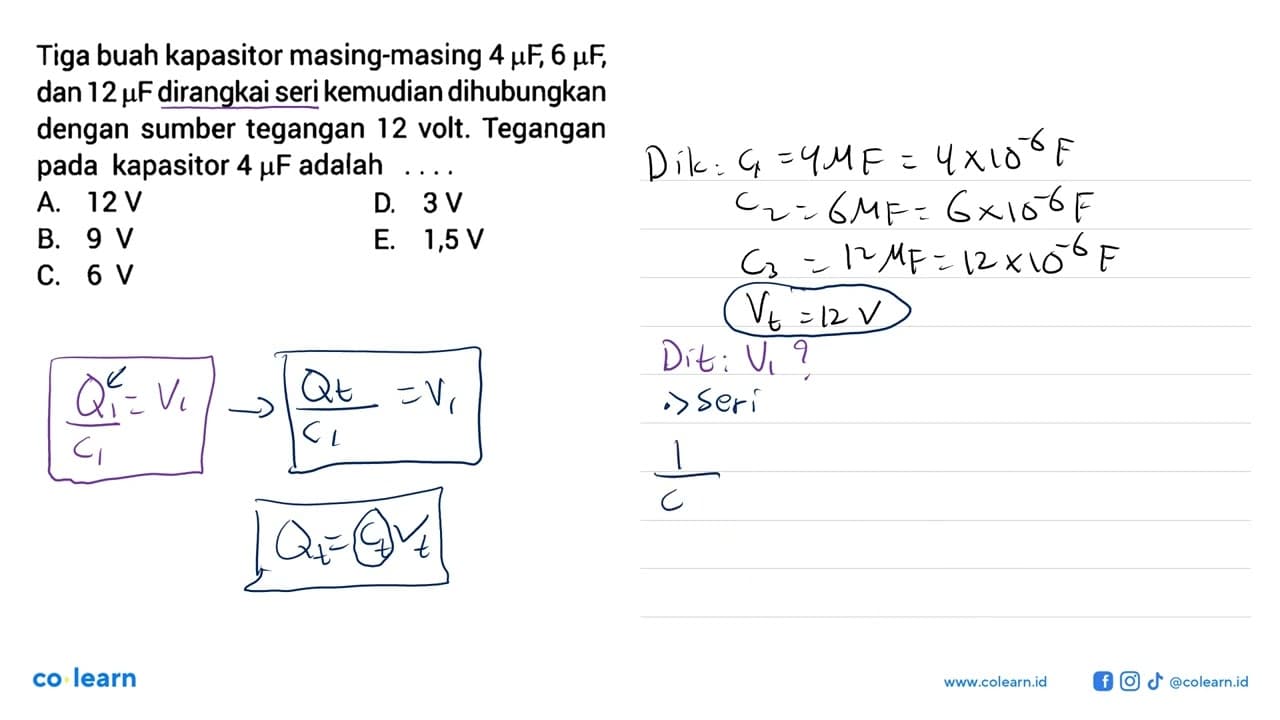 Tiga buah kapasitor masing-masing 4 μF, 6 μF,
dan 12 μF dirangkai seri kemudian dihubungkan
dengan sumber tegangan 12 volt. Tegangan
pada kapasitor 4 μF adalah ....
A. 12 V
B. 9 V
C. 6 V
D. 3 V
E. 1,5 V
Q1/C1 = V1
→ Qt/C1 = V1
Qt = Ct Vt
Dik: C1 = 4 MF = 4 × 10^-6 F
C2 = 6 MF = 6 × 10^-6 F
C3 = 12 MF = 12 × 10^-6 F
Vt = 12 V
Dit: V1 ?
.> seri
1/C
co learn
www.colearn.id
@colearn.id